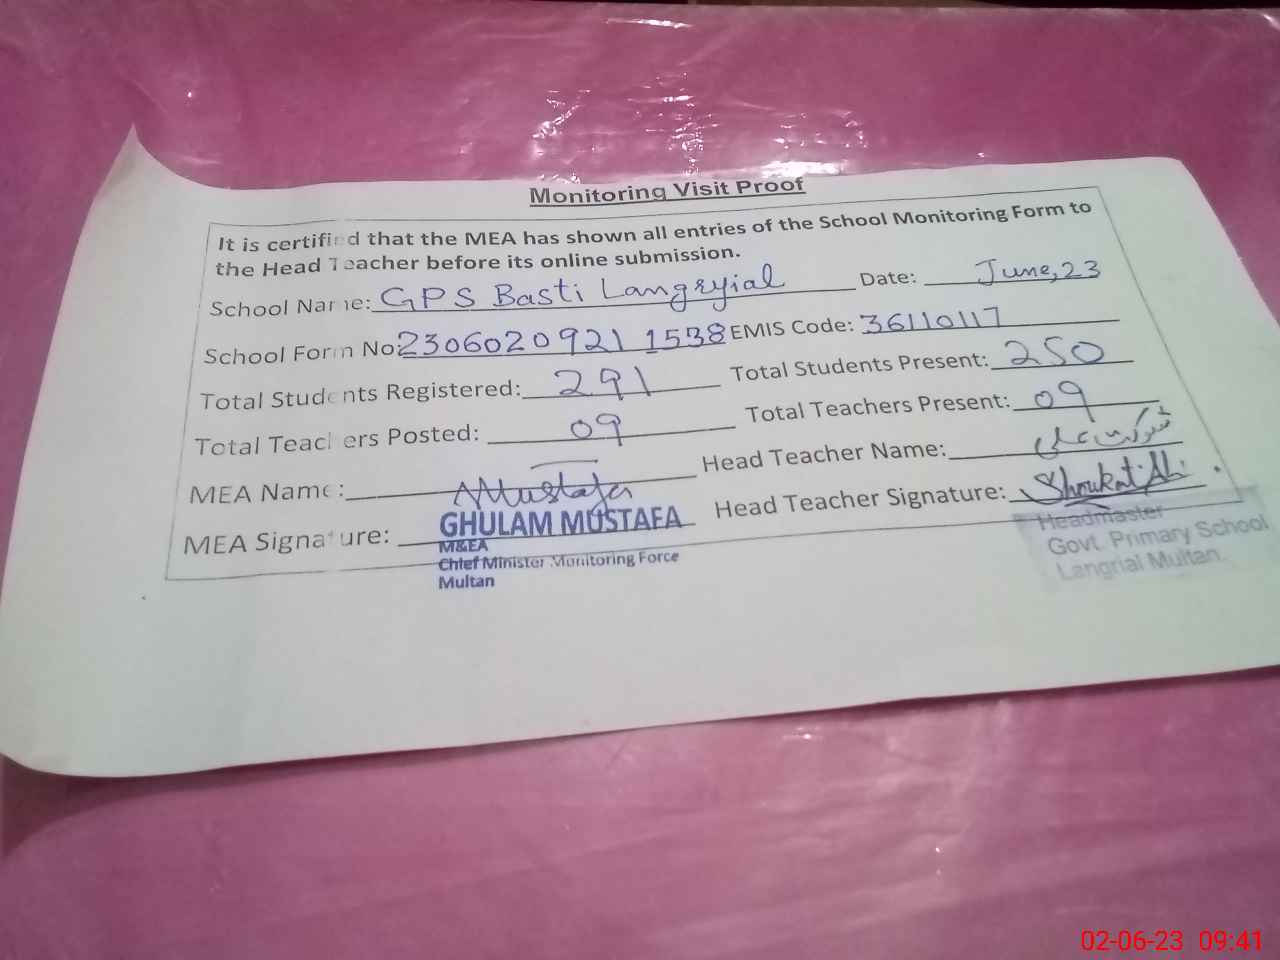 Monitoring Visit Proof
It is certified that the MEA has shown all entries of the School Monitoring Form to
the Head Teacher before its online submission.
School Name: GPS Basti Langryial Date: June, 23
School Form No: 23060209211538 EMIS Code: 36110117
Total Students Registered: 291 Total Students Present: 250
Total Teachers Posted: 09 Total Teachers Present: 09
MEA Name: Head Teacher Name: شوکت علی
MEA Signature: Mustafa Head Teacher Signature: Shoukat Ali
GHULAM MUSTAFA
M&EA
Chief Minister Monitoring Force
Multan
Headmaster
Govt. Primary School
Langrial Multan.
02-06-23 09:41